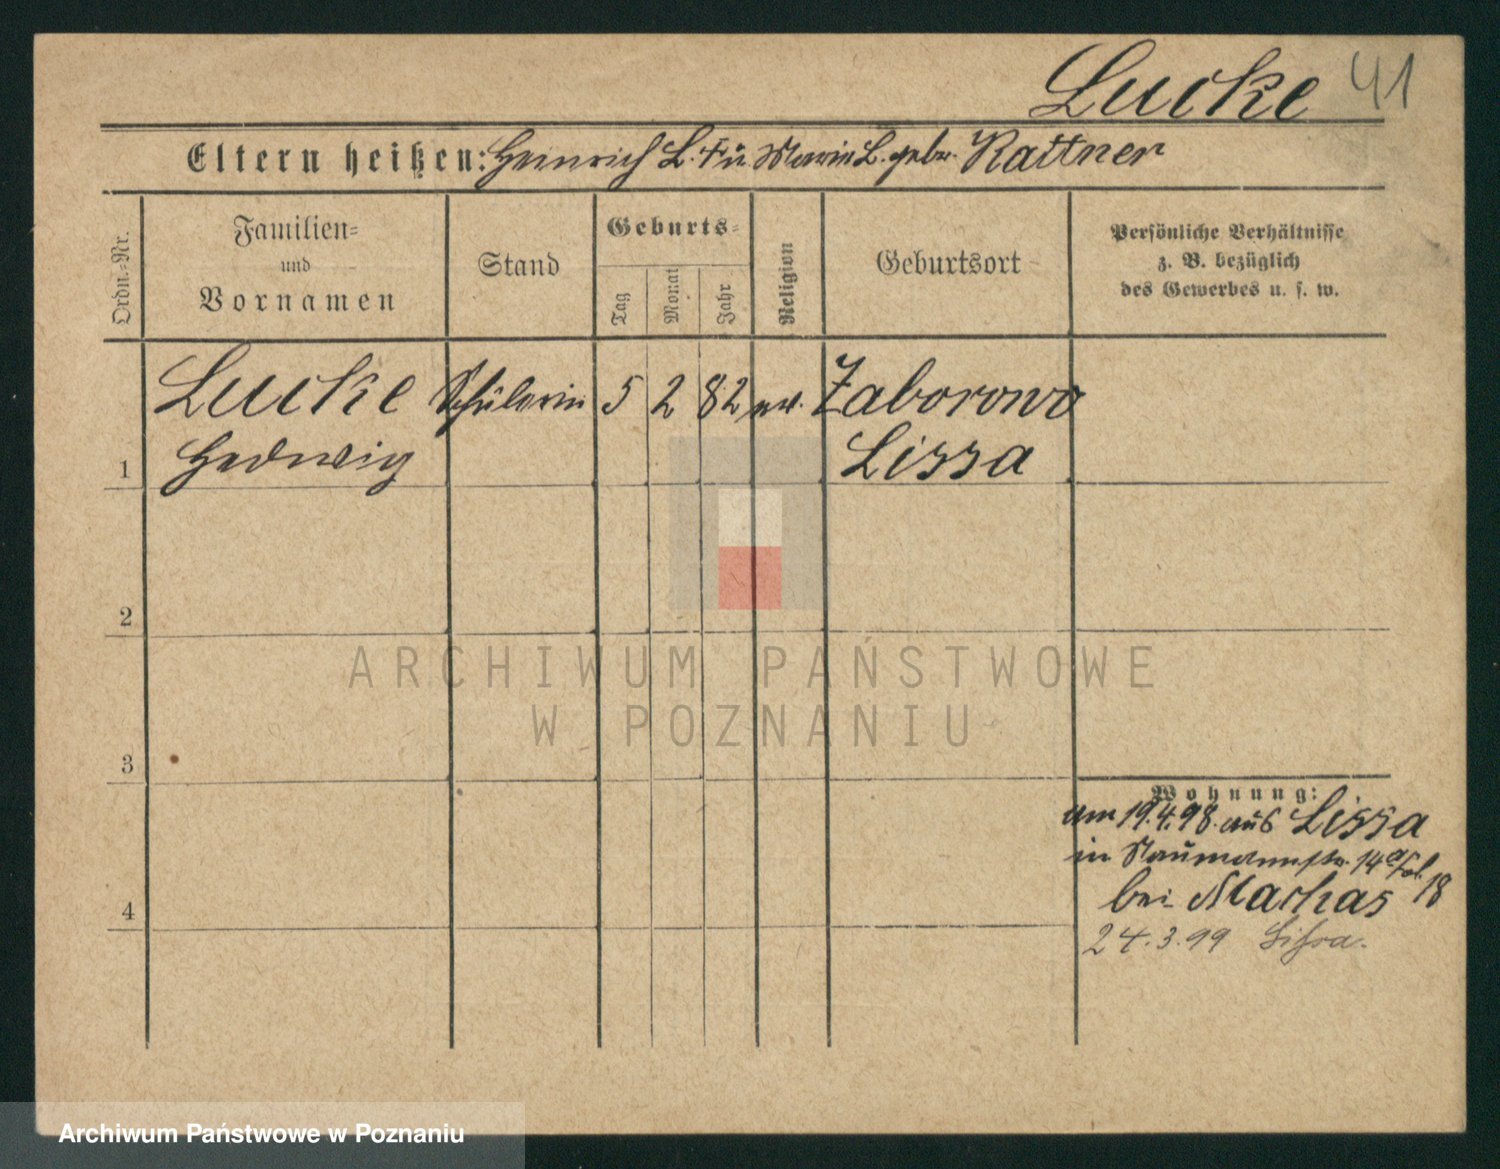 Lucke 41
Eltern heißen: Heinrich L. † u. Marie L. gebr. Rattner
Ordn.-Nr.
Familien-
und
Vornamen
Stand
Geburts-
Tag
Monat
Jahr
Religion
Geburtsort
Persönliche Verhältnisse
z. B. bezüglich
des Gewerbes u. s. w.
Lucke Schülerin 5 2 82 ev. Zaborowo
1 Hedwig Lissa
2
ARCHIWUM PAŃSTWOWE
W POZNANIU
3
Wohnung:
am 19.4.98. aus Lissa
in Naumannstr. 14a
18
bei Machas
4
24.3.99 Lissa.
Archiwum Państwowe w Poznaniu